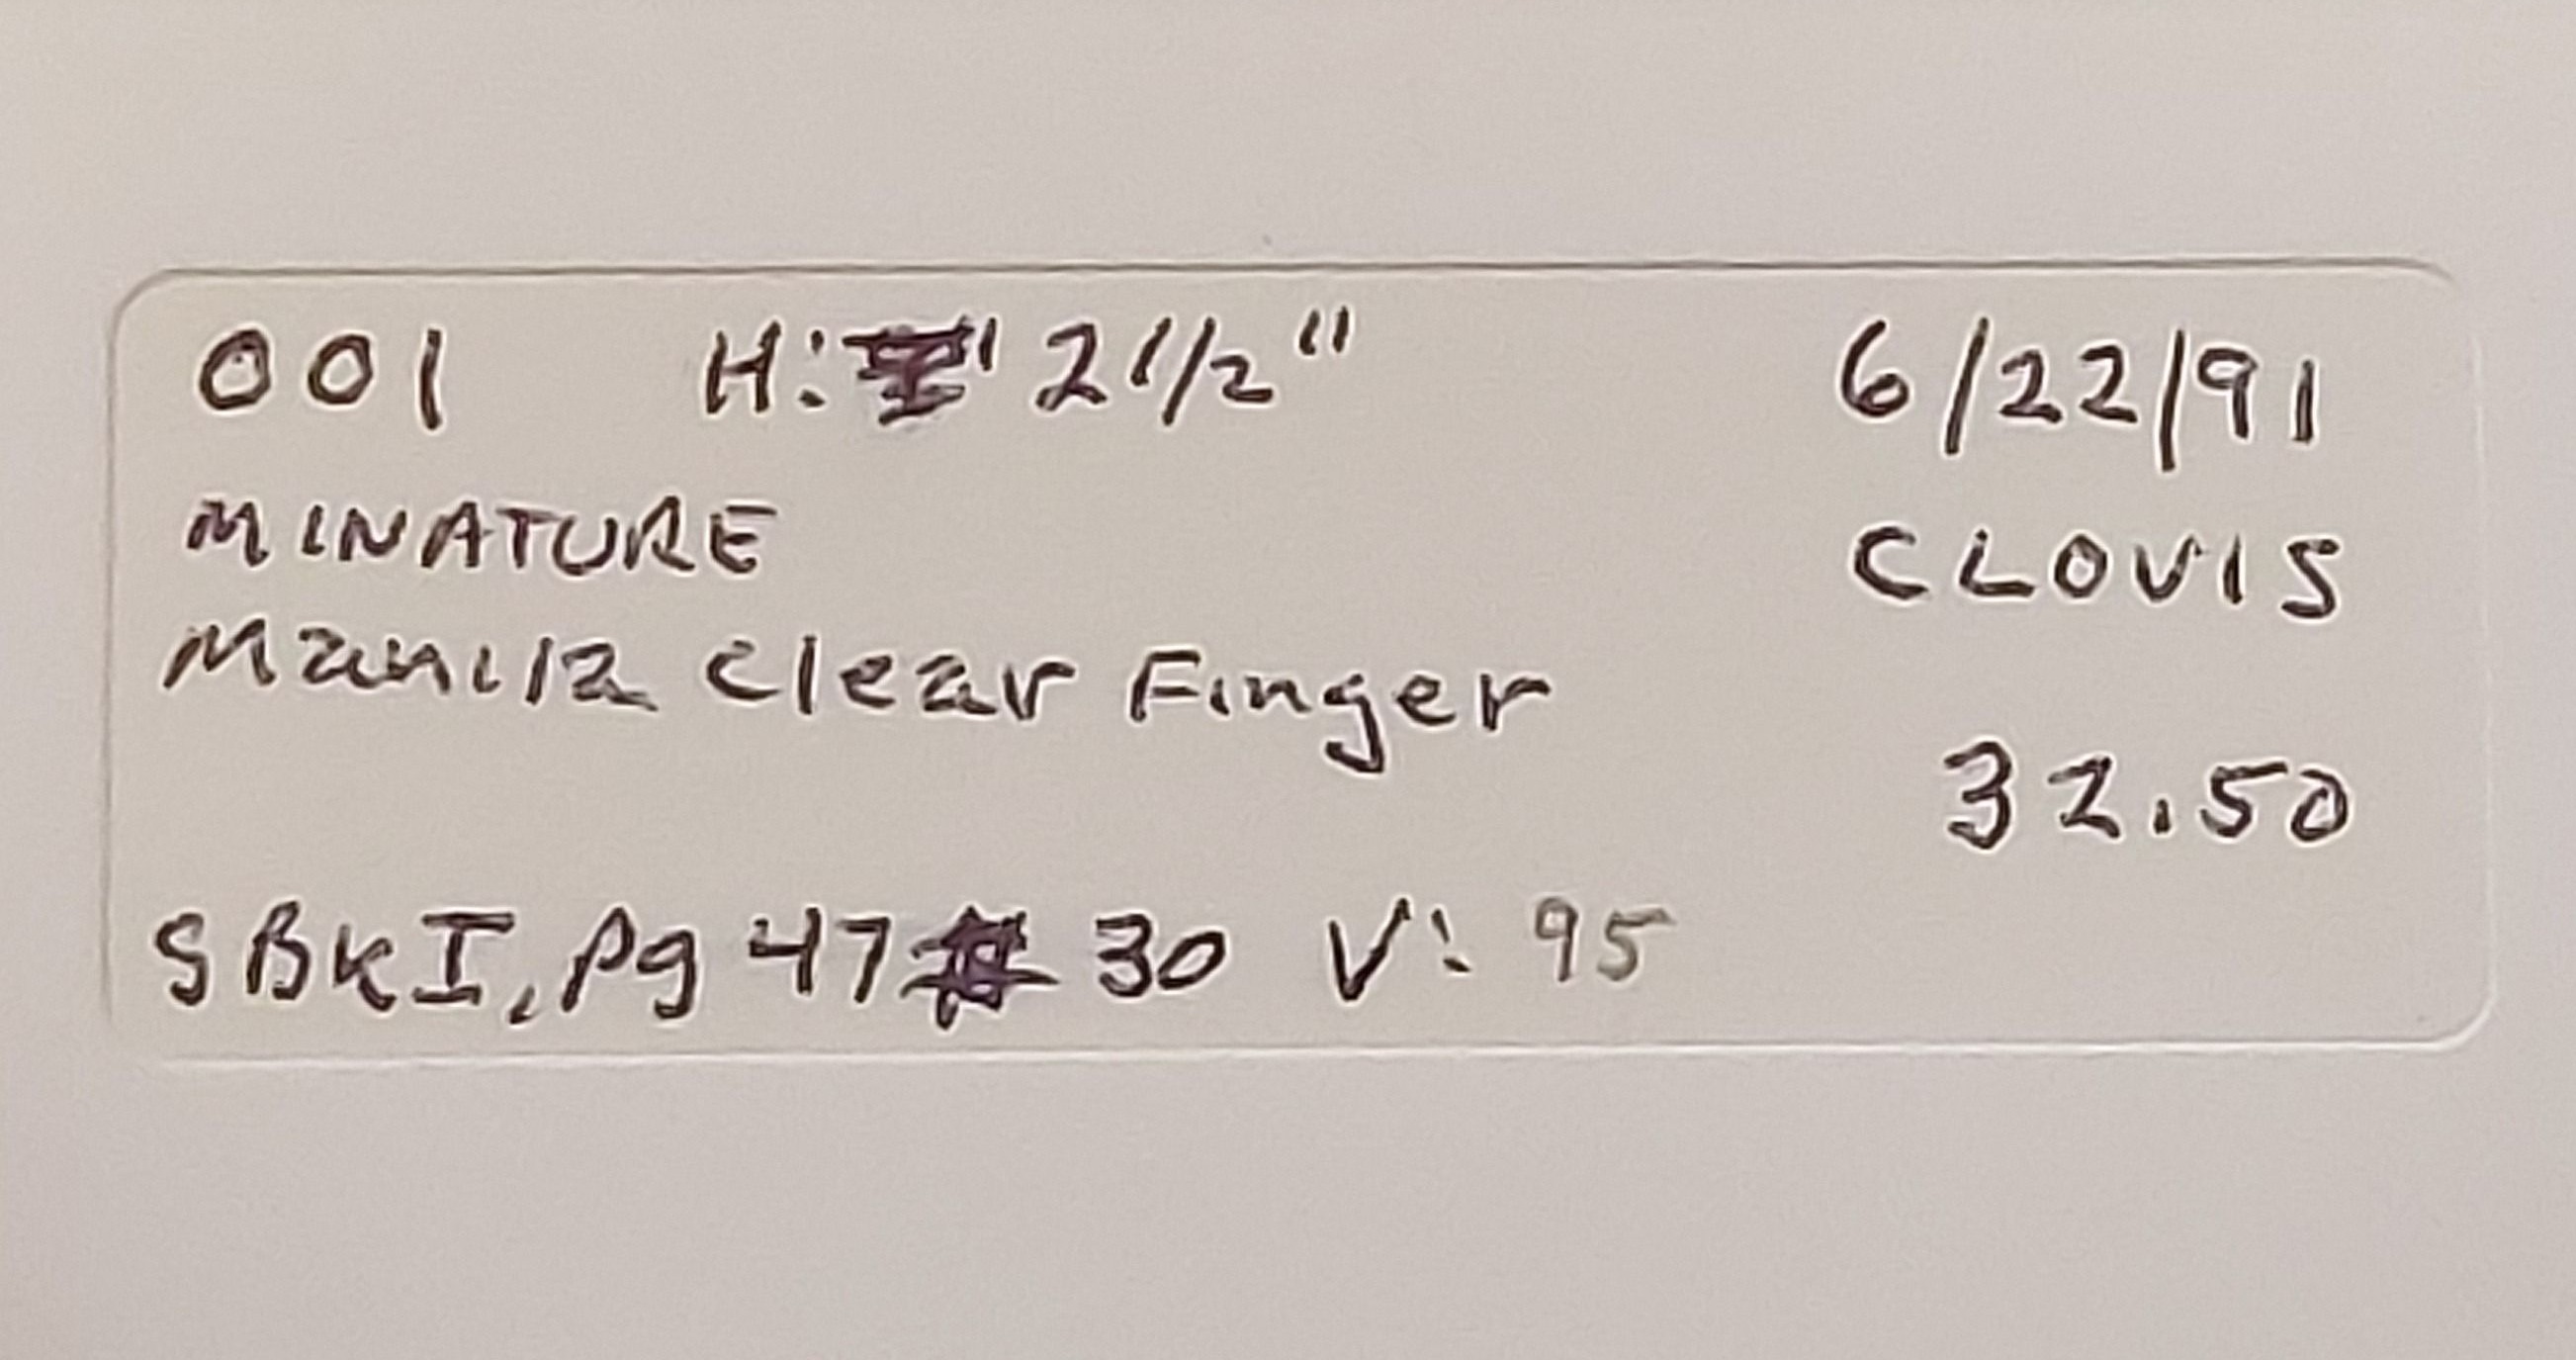 001 H: 2 1/2" 6/22/91
MINATURE CLOVIS
Manila Clear Finger
32.50
SBkI, pg 47 # 30 V: 95